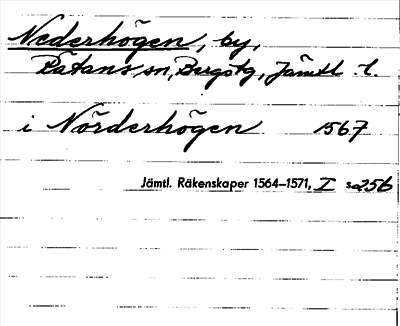 Nederhögen, by,
Rätans sn, Bergstg, Jämtl. l.
i Nörderhögen 1567
Jämtl. Räkenskaper 1564–1571, I s 256